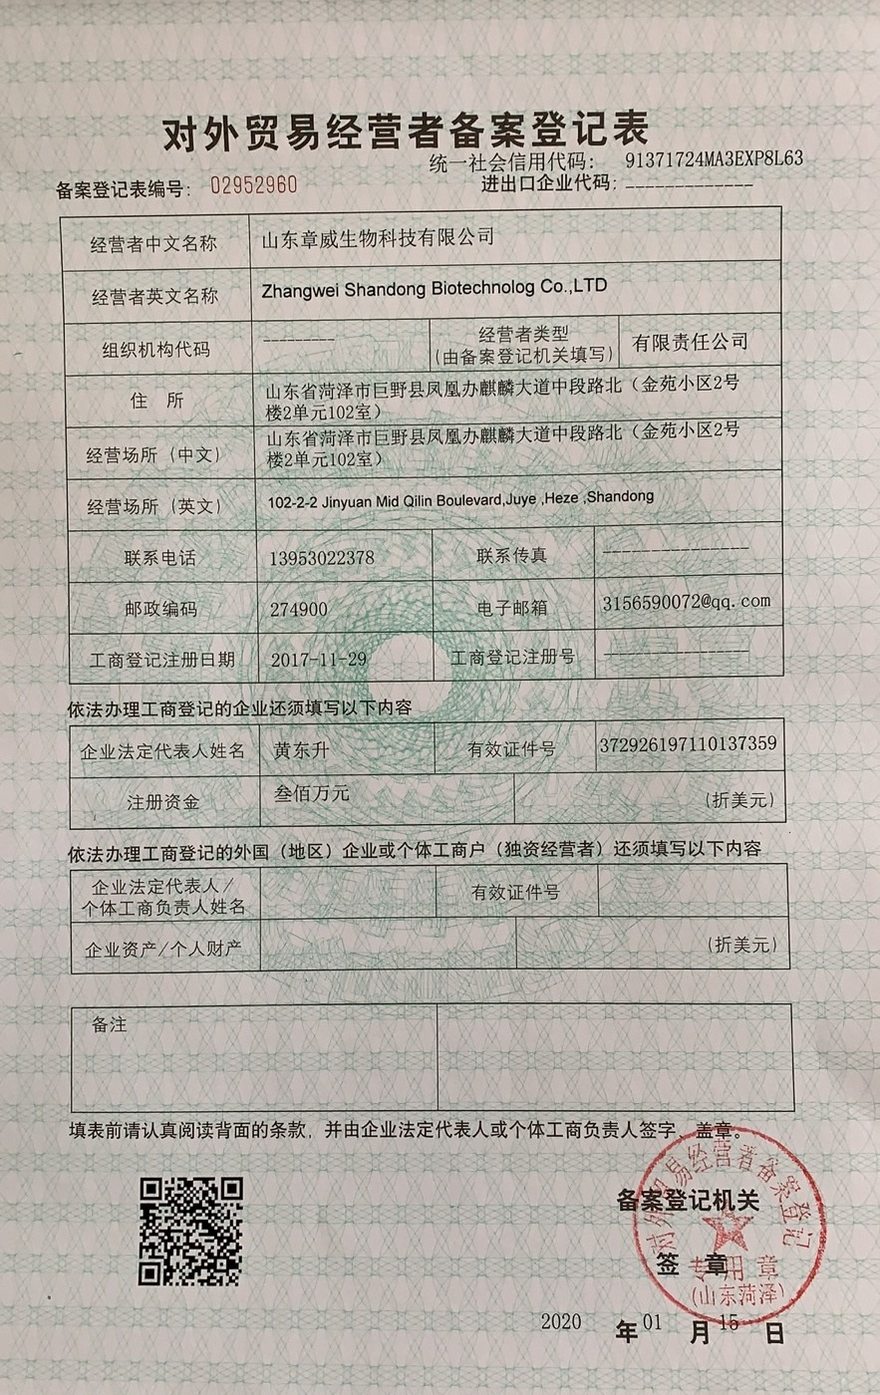 对外贸易经营者备案登记表
统一社会信用代码： 91371724MA3EXP8L63
备案登记表编号： 02952960
进出口企业代码：-------------
经营者中文名称 山东章威生物科技有限公司
经营者英文名称 Zhangwei Shandong Biotechnolog Co.,LTD
组织机构代码 --------- 经营者类型 (由备案登记机关填写) 有限责任公司
住 所 山东省菏泽市巨野县凤凰办麒麟大道中段路北（金苑小区2号
楼2单元102室）
经营场所（中文） 山东省菏泽市巨野县凤凰办麒麟大道中段路北（金苑小区2号
楼2单元102室）
经营场所（英文） 102-2-2 Jinyuan Mid Qilin Boulevard,Juye ,Heze ,Shandong
联系电话 13953022378 联系传真 ---------------
邮政编码 274900 电子邮箱 3156590072@qq.com
工商登记注册日期 2017-11-29 工商登记注册号 ---------------
依法办理工商登记的企业还须填写以下内容
企业法定代表人姓名 黄东升 有效证件号 372926197110137359
注册资金 叁佰万元 (折美元)
依法办理工商登记的外国（地区）企业或个体工商户（独资经营者）还须填写以下内容
企业法定代表人/
个体工商负责人姓名 有效证件号
企业资产/个人财产 (折美元)
备注
填表前请认真阅读背面的条款，并由企业法定代表人或个体工商负责人签字、盖章。
备案登记机关
签 章
对外贸易经营者备案登记
专用章
(山东菏泽)
2020 年 01 月 15 日